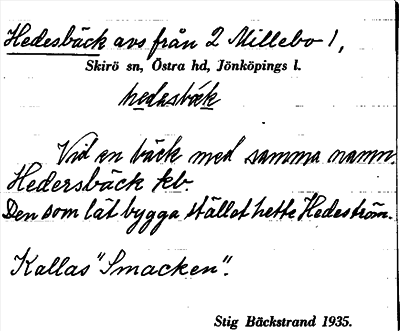 Hedesbäck avs från 2 Millebo 1,
Skirö sn, Östra hd, Jönköpings l.
hedesbäk
Vid en bäck med samma namn.
Hedersbäck kb.
Den som lät bygga stället hette Hedeström.
Kallas "Smacken".
Stig Bäckstrand 1935.